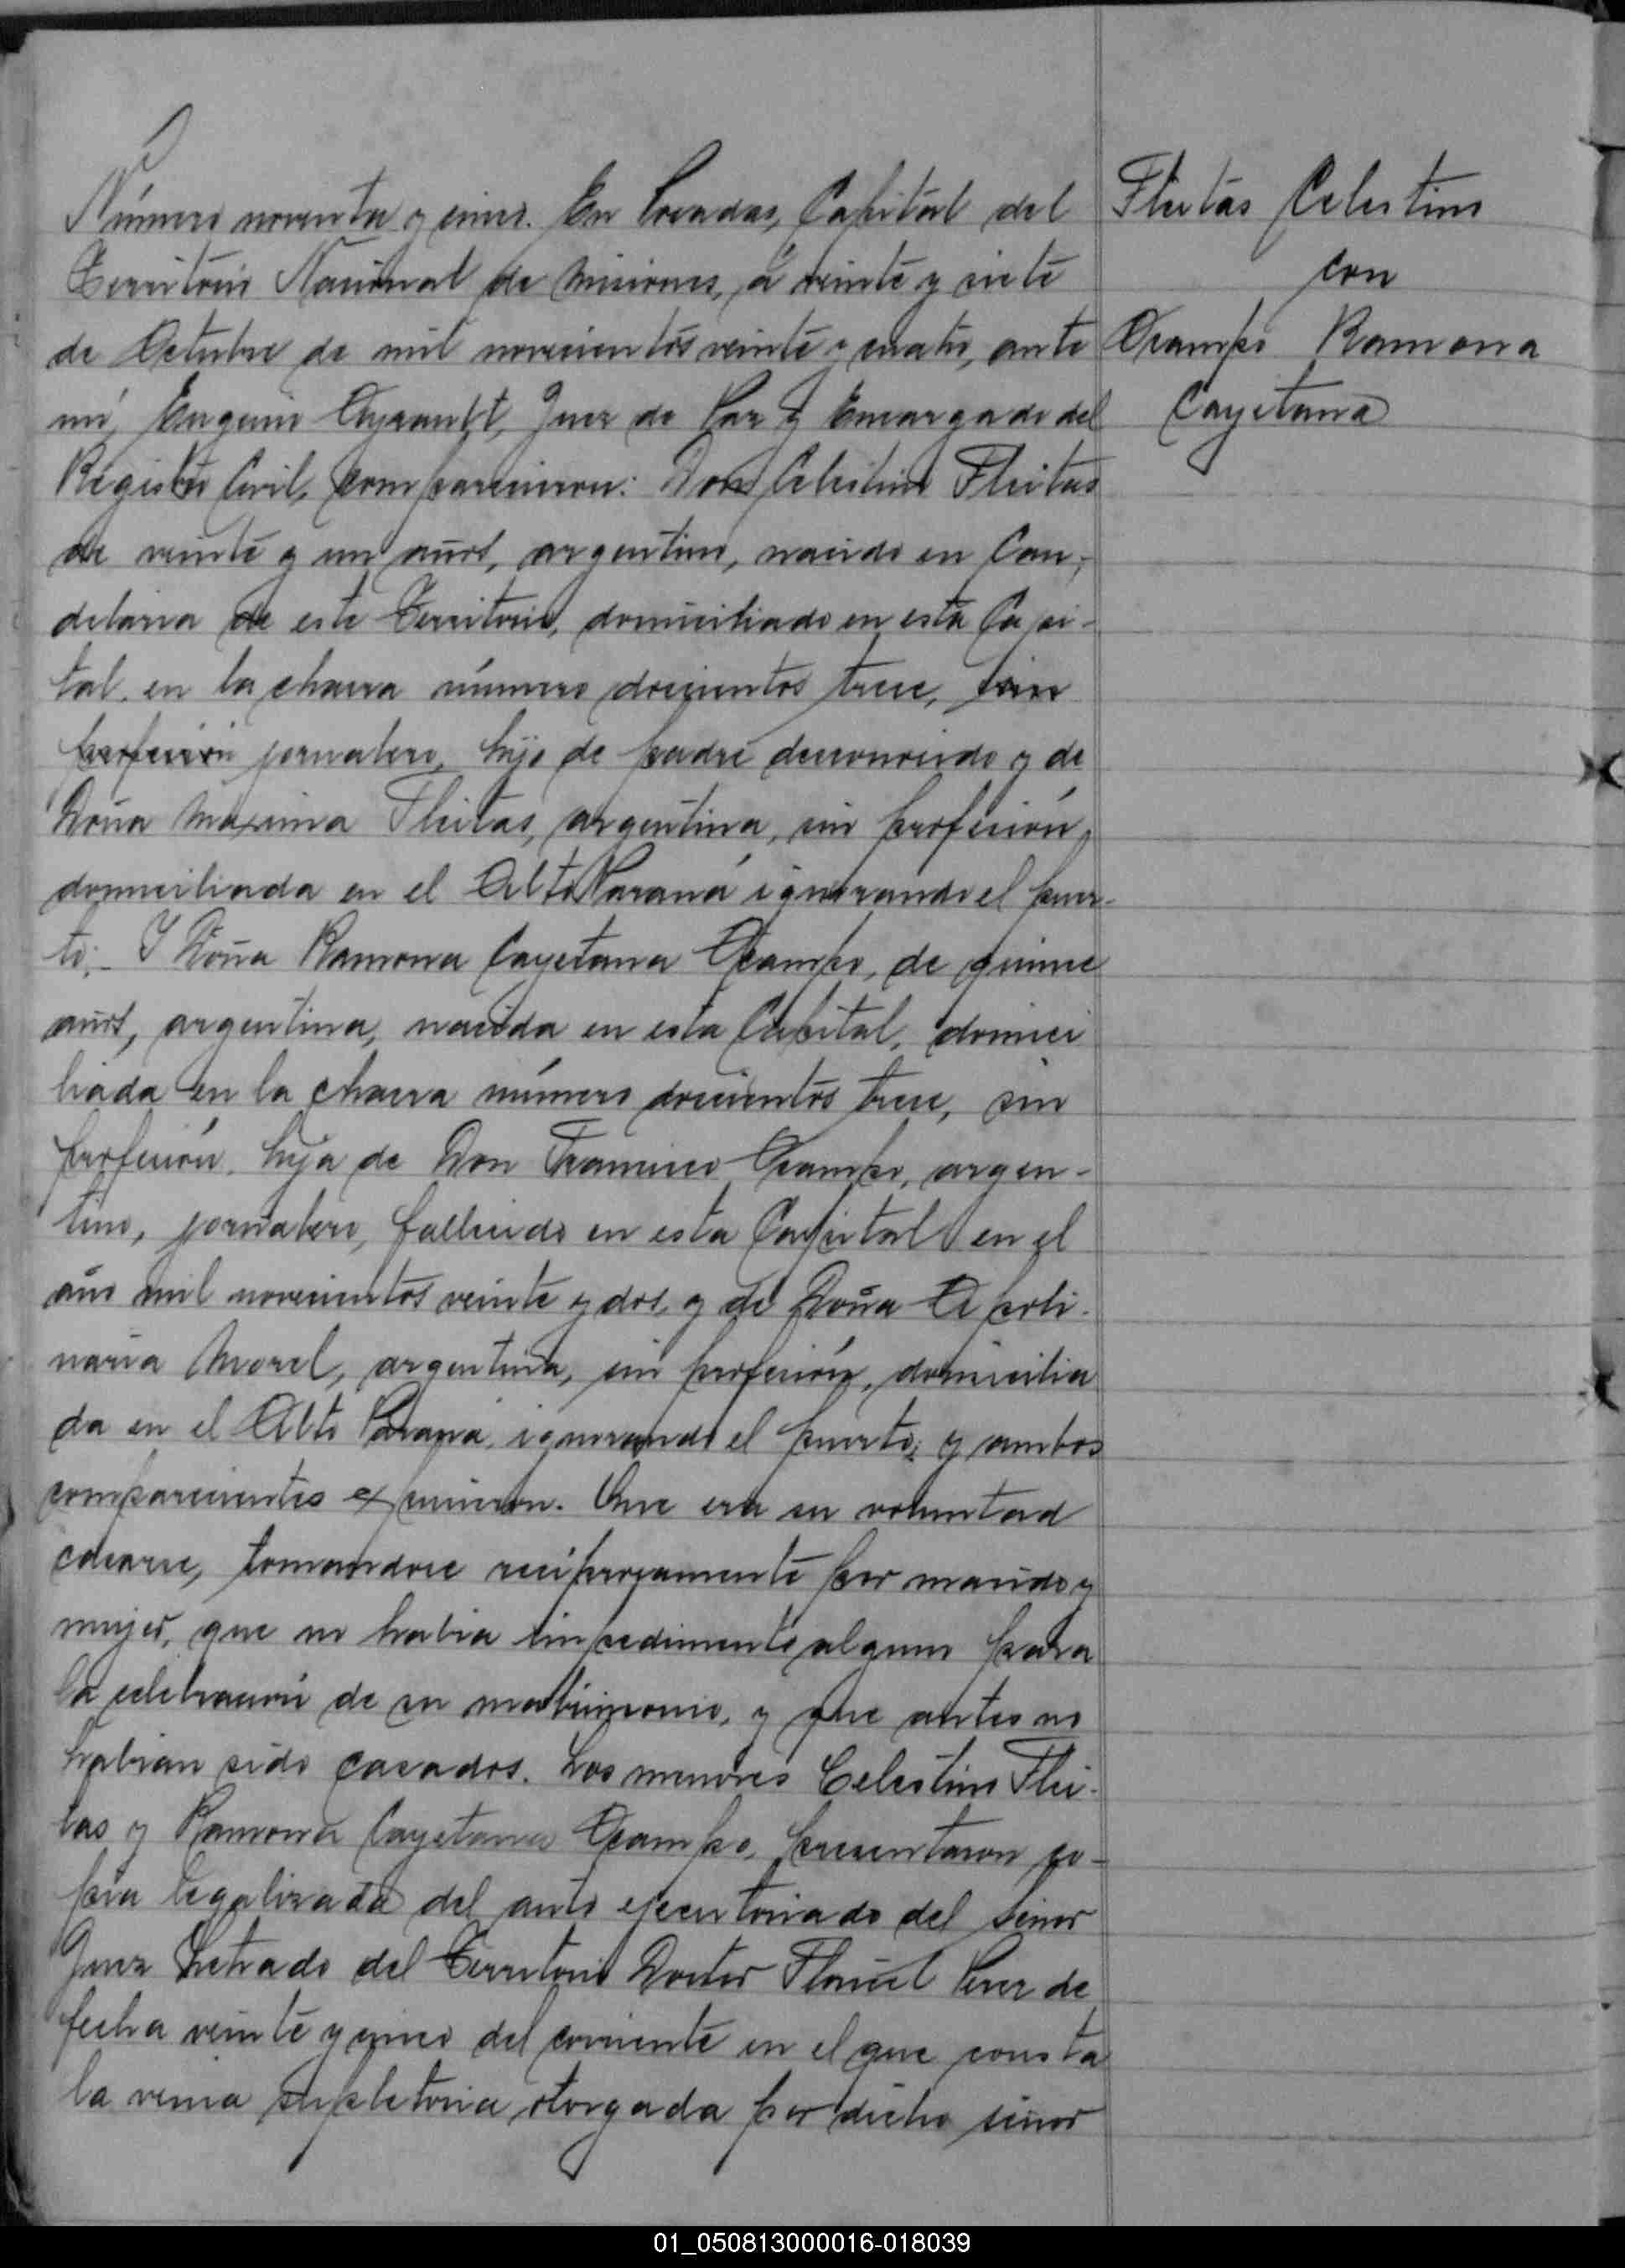 Número noventa y cinco. En Posadas, Capital del
Territorio Nacional de Misiones, á veinte y siete
de Octubre de mil novecientos veinte y cuatro, ante
mí, Eugenio Ayrault, Juez de Paz y Encargado del
Registro Civil, comparecieron: Don Celestino Fleitas
de veinte y un años, argentino, nacido en Can-
delaria de este Territorio, domiciliado en esta Capi-
tal, en la chacra número docientos trece, sin
profesión jornalero, hijo de padre desconocido y de
Doña Máxima Fleitas, argentina, sin profesión,
domiciliada en el Alto Paraná ignorando el puer-
to;- Y Doña Ramona Cayetana Ocampo, de quince
años, argentina, nacida en esta Capital, domici
liada en la chacra número docientos trece, sin
profesión, hija de Don Francisco Ocampo, argen-
tino, jornalero, fallecido en esta Capital en el
año mil novecientos veinte y dos, y de Doña Apoli-
naria Morel, argentina, sin profesión, domicilia
da en el Alto Paraná, ignorando el puerto; y ambos
comparecientes expusieron. Que era su voluntad
casarse, tomandose reciprocamente por marido y
mujer, que no habia impedimento alguno para
la celebración de su matrimonio, y que antes no
habian sido casados. Los menores Celestino Flei-
tas y Ramona Cayetana Ocampo, presentaron co-
pia legalizada del auto ejecutoriado del señor
Juez Letrado del Territorio Doctor Perez de
fecha veinte y cinco del corriente en el que consta
la venia supletoria otorgada por dicho señor
Fleitas Celestino
con
Ocampo Ramona
Cayetana
01_050813000016-018039